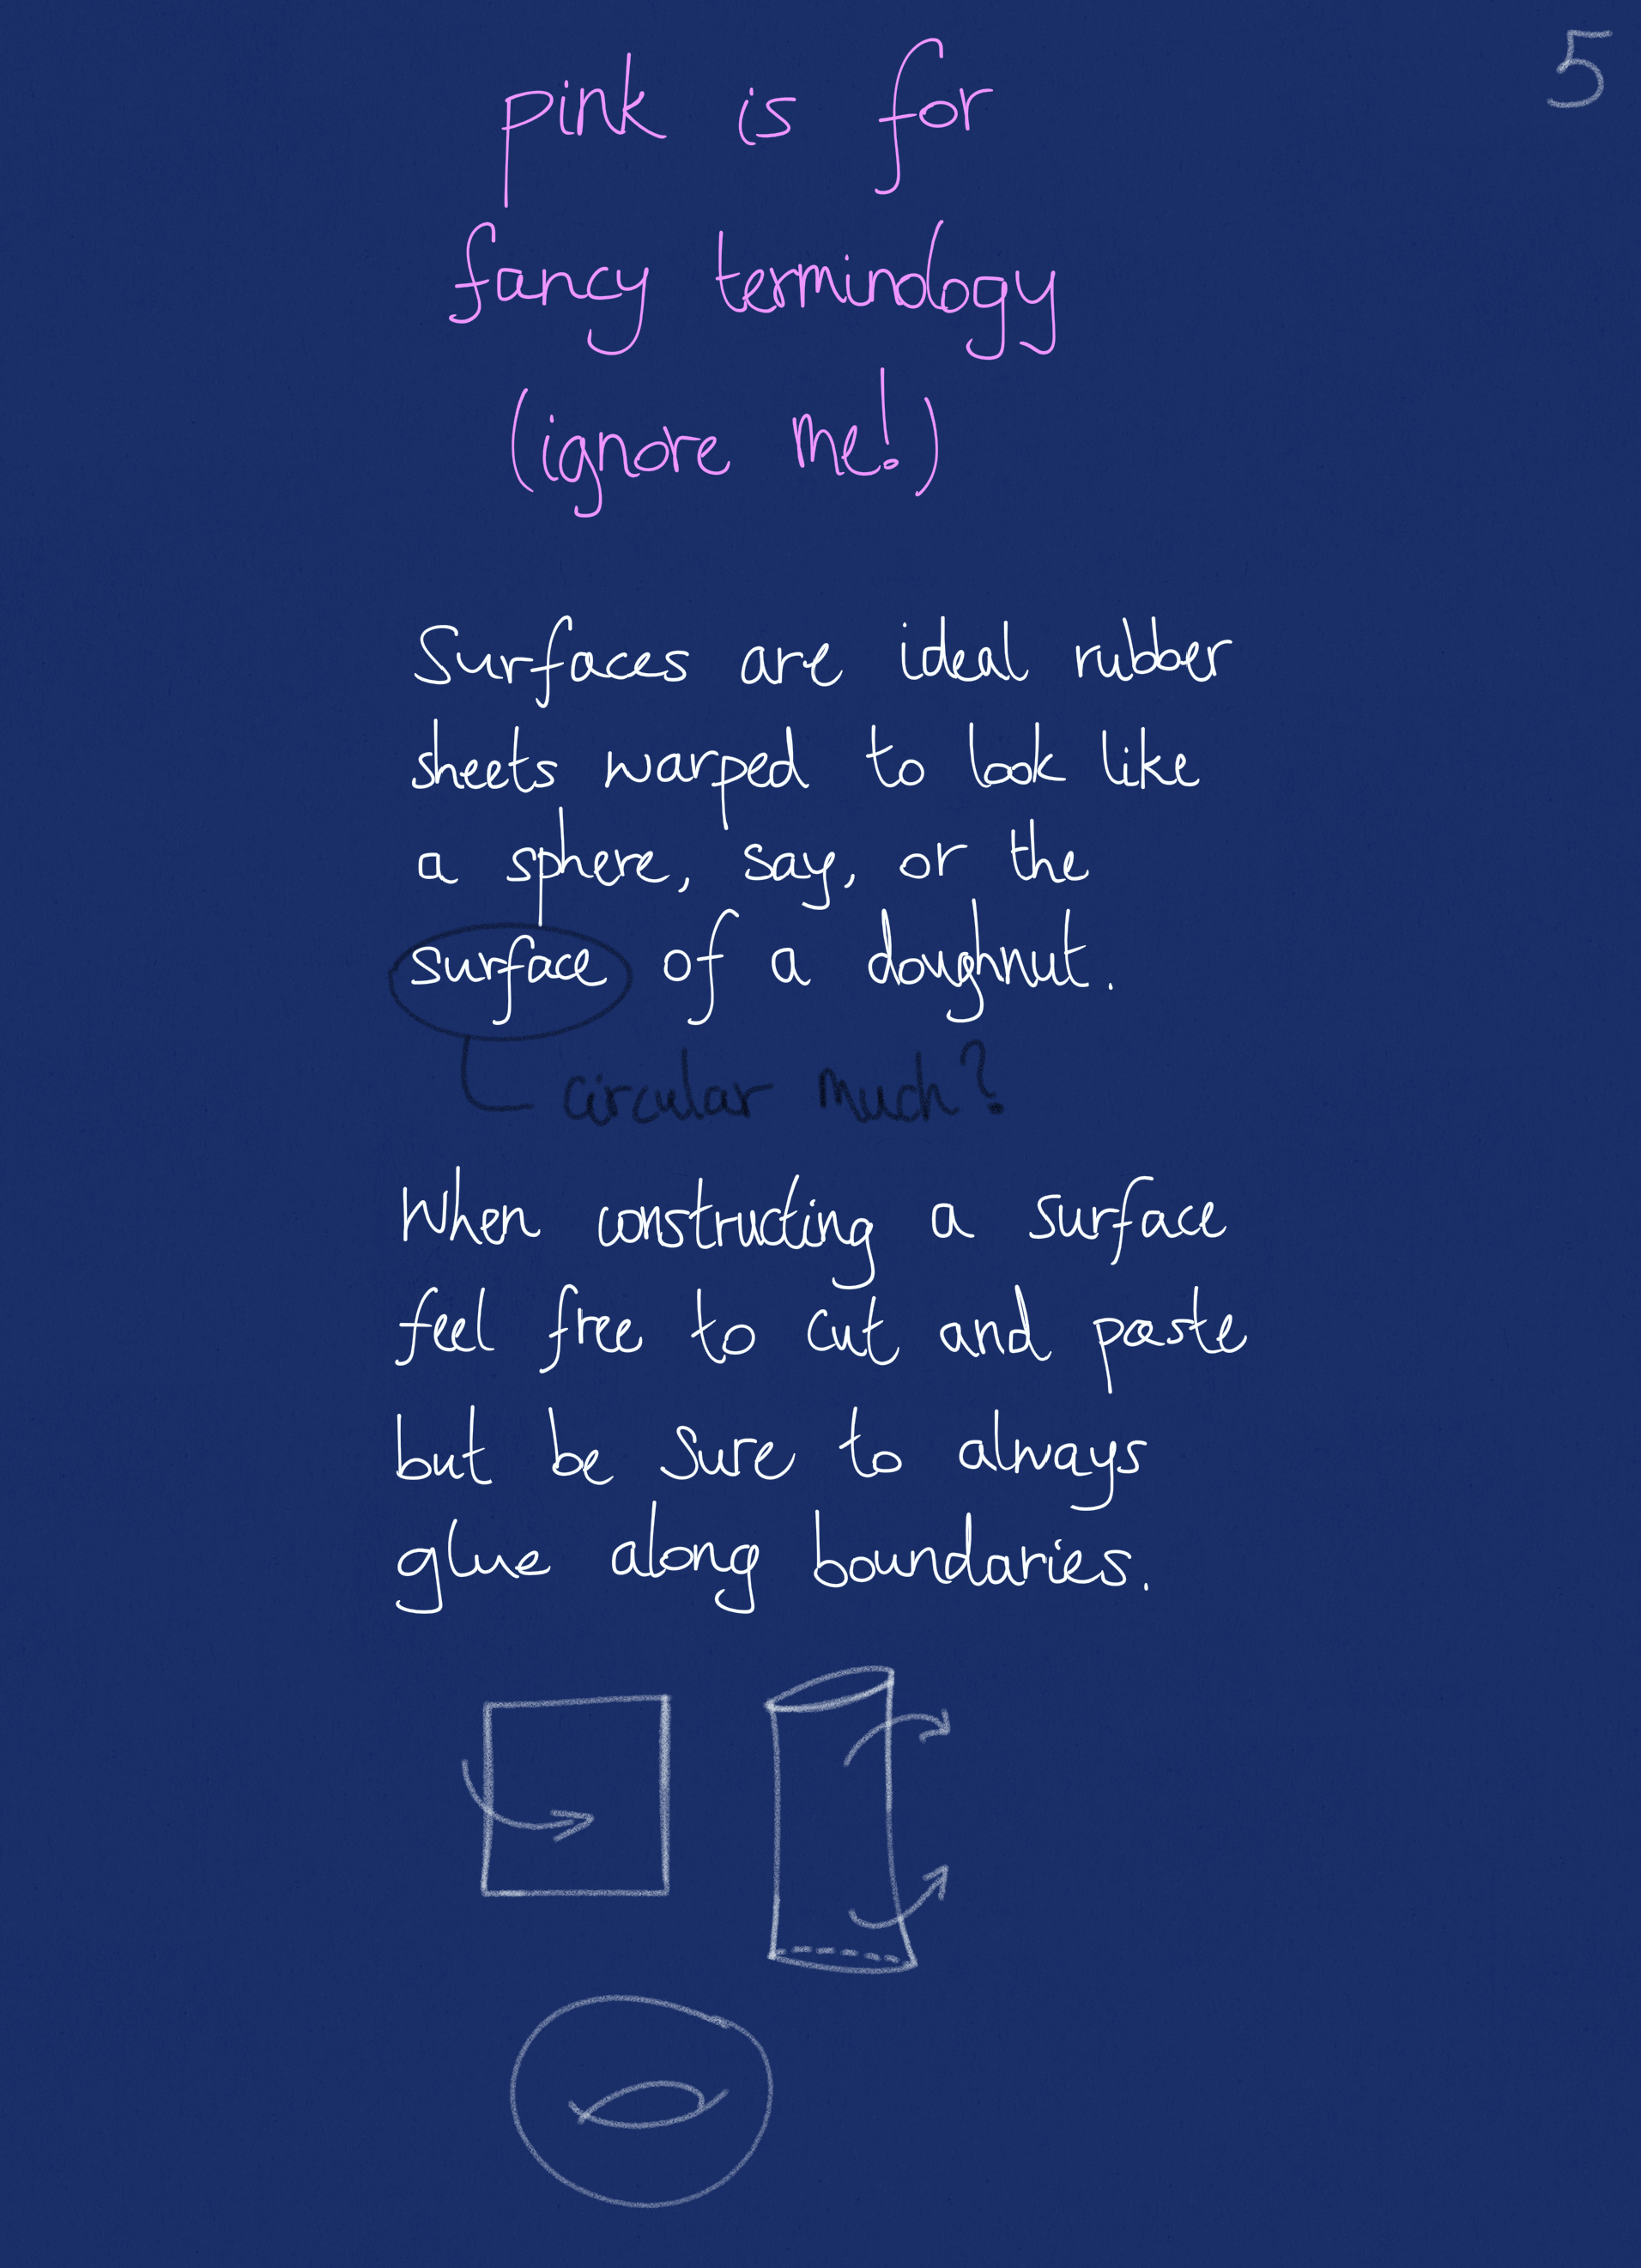 5
pink is for
fancy terminology
(ignore me!)
Surfaces are ideal rubber
sheets warped to look like
a sphere, say, or the
surface of a doughnut.
circular much?
When constructing a surface
feel free to cut and paste
but be sure to always
glue along boundaries.